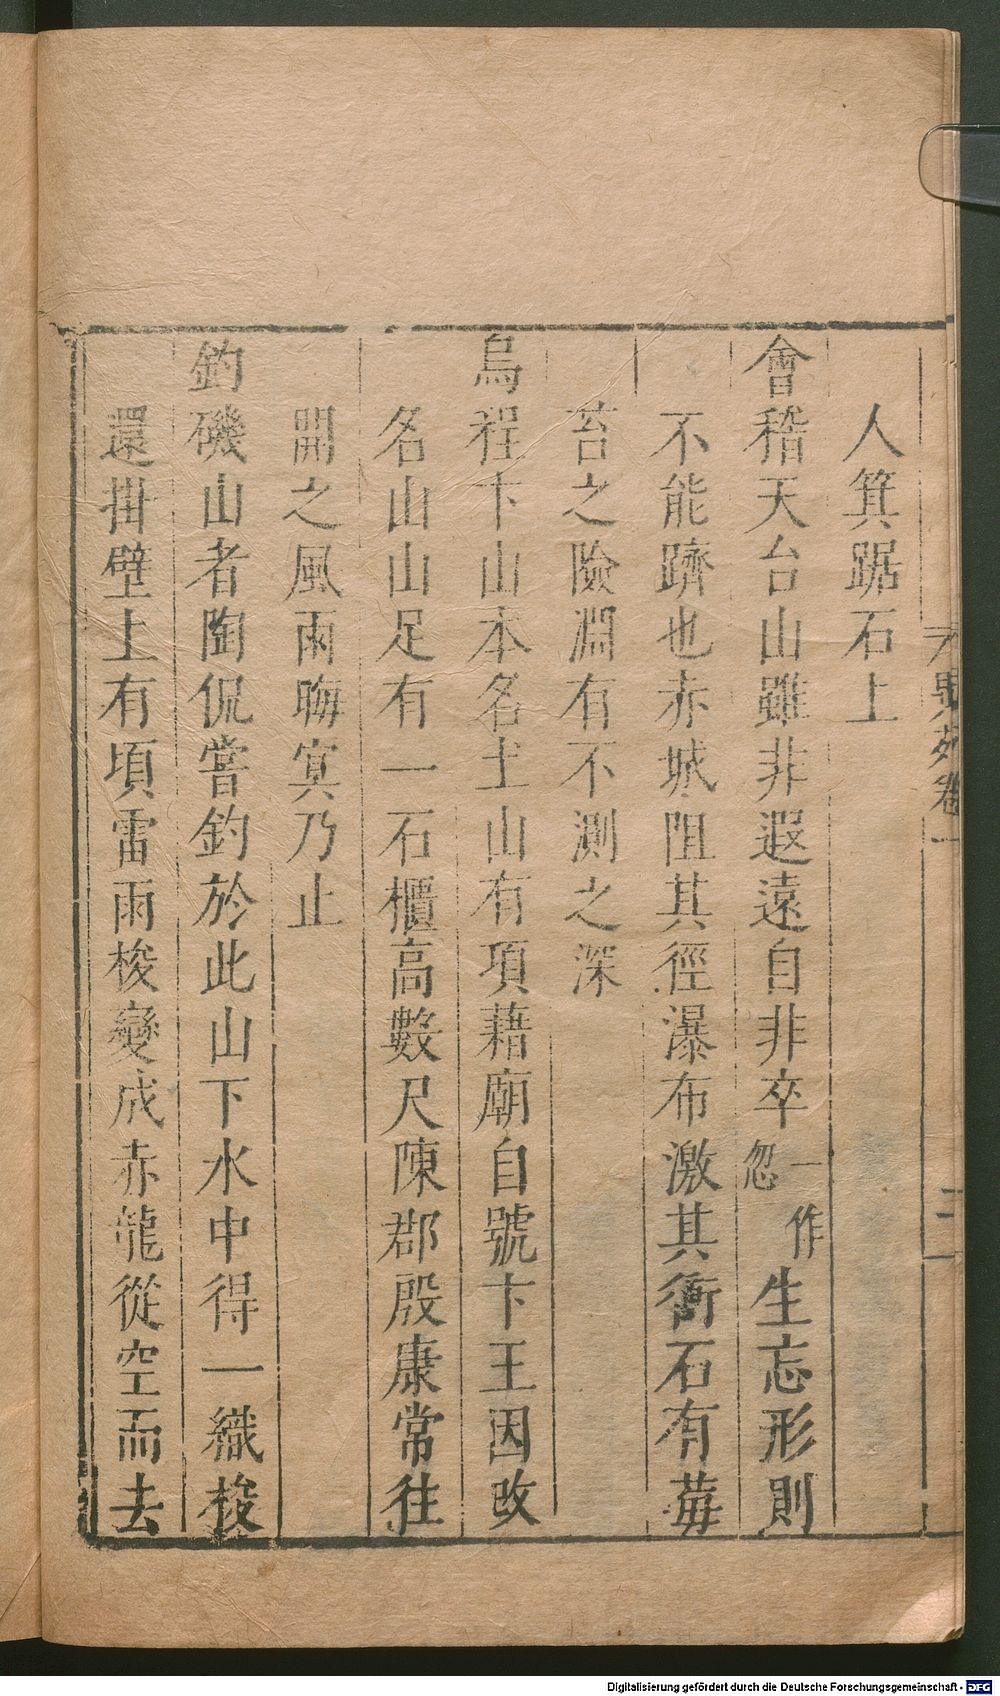 異苑卷一
三
人箕踞石上
會稽天台山雖非遐遠自非卒一作忽生忘形則
不能躋也赤城阻其徑瀑布激其衝石有莓
苔之險淵有不測之深
烏程卞山本名土山有項藉廟自號卞王因改
名山山足有一石櫃高數尺陳郡殷康常往
開之風雨晦㝠乃止
釣磯山者陶侃嘗釣於此山下水中得一織梭
還掛壁上有頃雷雨梭變成赤龍從空而去
Digitalisierung gefördert durch die Deutsche Forschungsgemeinschaft - DFG